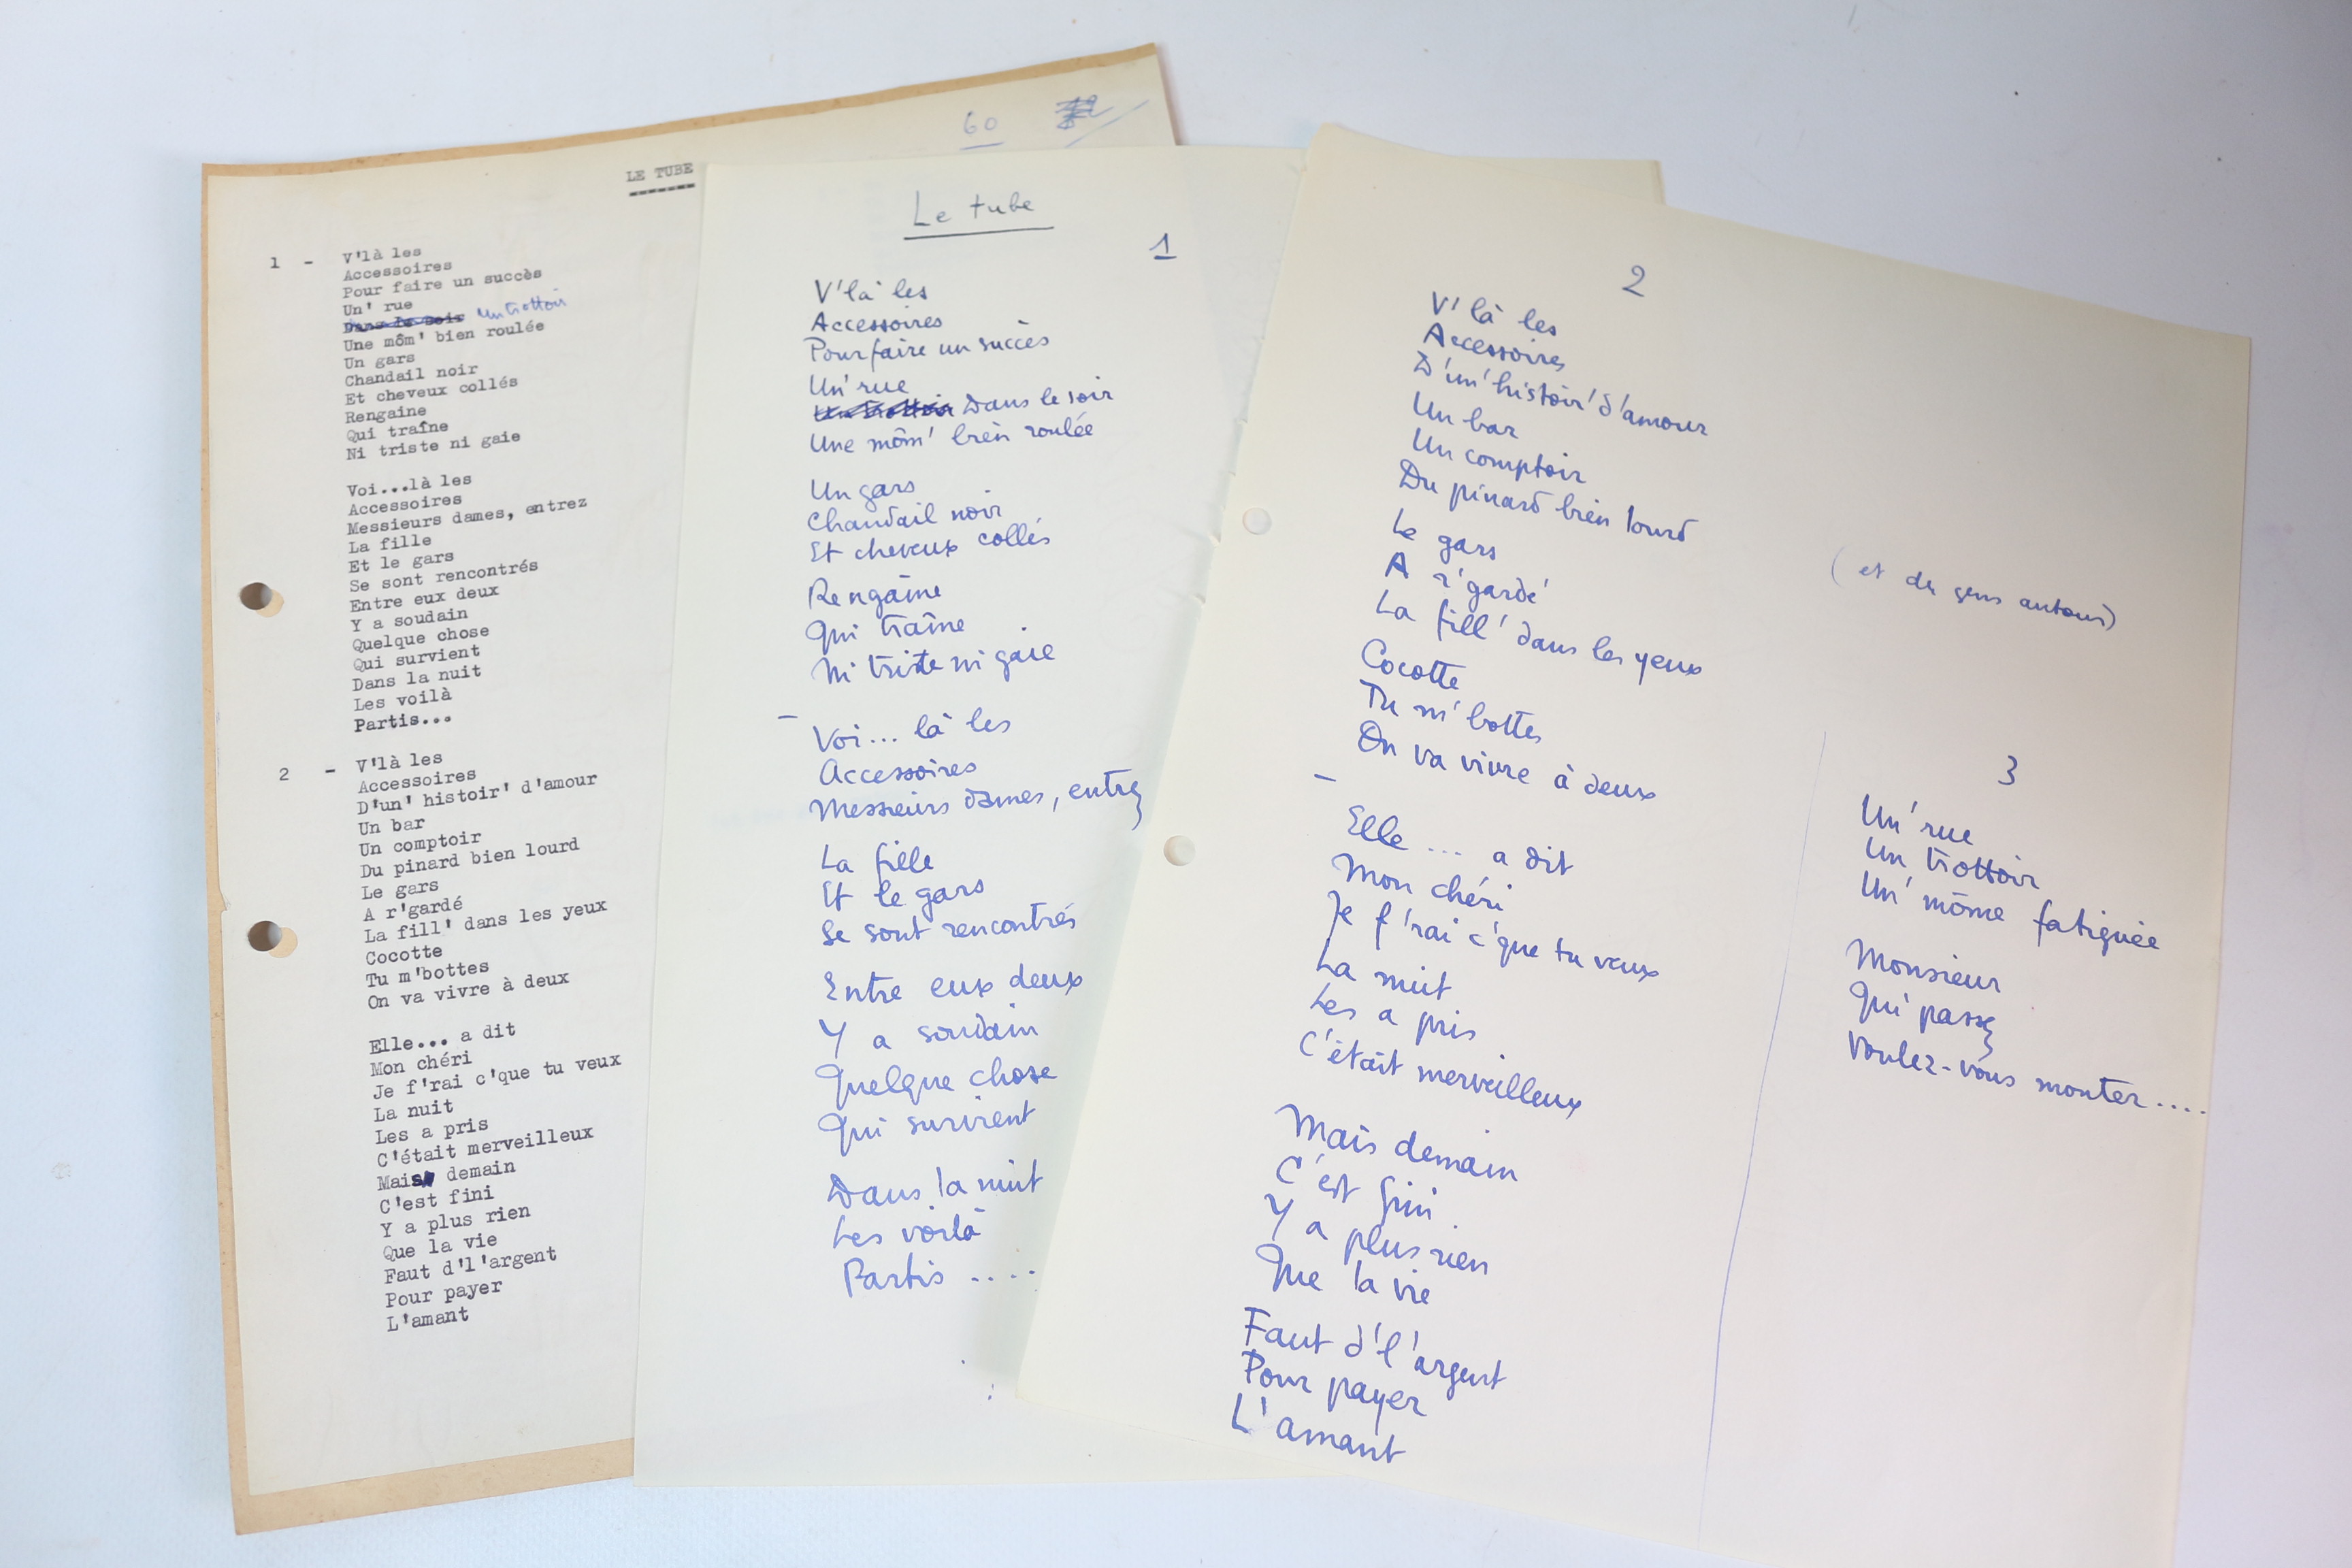 60
LE TUBE
1 - V'là les
Accessoires
Pour faire un succès
Un' rue
Dans le soir un trottoir
Une môm' bien roulée
Un gars
Chandail noir
Et cheveux collés
Rengaine
Qui traîne
Ni triste ni gaie
Voi...là les
Accessoires
Messieurs dames, entrez
La fille
Et le gars
Se sont rencontrés
Entre eux deux
Y a soudain
Quelque chose
Qui survient
Dans la nuit
Les voilà
Partis...
2 - V'là les
Accessoires
D'un' histoir' d'amour
Un bar
Un comptoir
Du pinard bien lourd
Le gars
A r'gardé
La fill' dans les yeux
Cocotte
Tu m'bottes
On va vivre à deux
Elle... a dit
Mon chéri
Je f'rai c'que tu veux
La nuit
Les a pris
C'était merveilleux
Mais demain
C'est fini
Y a plus rien
Que la vie
Faut d'l'argent
Pour payer
L'amant
Le tube
1
V'là les
Accessoires
Pour faire un succès
Un' rue
Un trottoir Dans le soir
Une môm' bien roulée
Un gars
Chandail noir
Et cheveux collés
Rengaine
Qui traîne
Ni triste ni gaie
Voi... là les
Accessoires
Messieurs dames, entrez
La fille
Et le gars
Se sont rencontrés
Entre eux deux
Y a soudain
Quelque chose
Qui survient
Dans la nuit
Les voilà
Partis ....
2
V'là les
Accessoires
D'un' histoir' d'amour
Un bar
Un comptoir
Du pinard bien lourd
Le gars
A r'gardé
La fill' dans les yeux
Cocotte
Tu m'bottes
On va vivre à deux
Elle ... a dit
Mon chéri
Je f'rai c'que tu veux
La nuit
Les a pris
C'était merveilleux
Mais demain
C'est fini
Y a plus rien
Que la vie
Faut d'l'argent
Pour payer
L'amant
(et des gens autour)
3
Un' rue
Un trottoir
Un' môme fatiguée
Monsieur
Qui passez
Voulez-vous monter ....